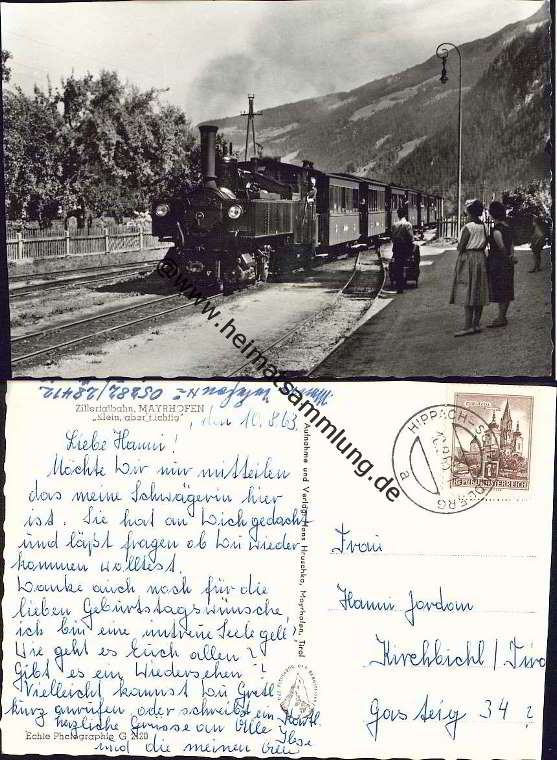 © www.heimatsammlung.de
Telefon Nr 05282/28412
Zillertalbahn, MAYRHOFEN
„Klein, aber lieblig"
, den 10. 8. 63.
Liebe Hanni!
Möchte Dir nur mitteilen
das meine Schwägerin hier
ist. Sie hat an Dich gedacht
und läßt fragen ob Du wieder
kommen wolltest.
Danke auch noch für die
lieben Geburtstagswünsche,
ich bin eine untreue Seele gell?
Wie geht es Euch allen?
Gibt es ein Wiedersehen?
Vielleicht kannst Du Gretl
kurz anrufen oder schreibst ein Kartl
herzliche Grüsse an Alle Ilse
und die meinen
Echte Photographie G 2120
Aufnahme und Verlag: Hans Hruschka, Mayrhofen, Tirol
HIPPACH-SCHWENDBERG
a
REPUBLIK ÖSTERREICH
Frau
Hanni Jordan
Kirchbichl/Tirol
Gasteig 34?